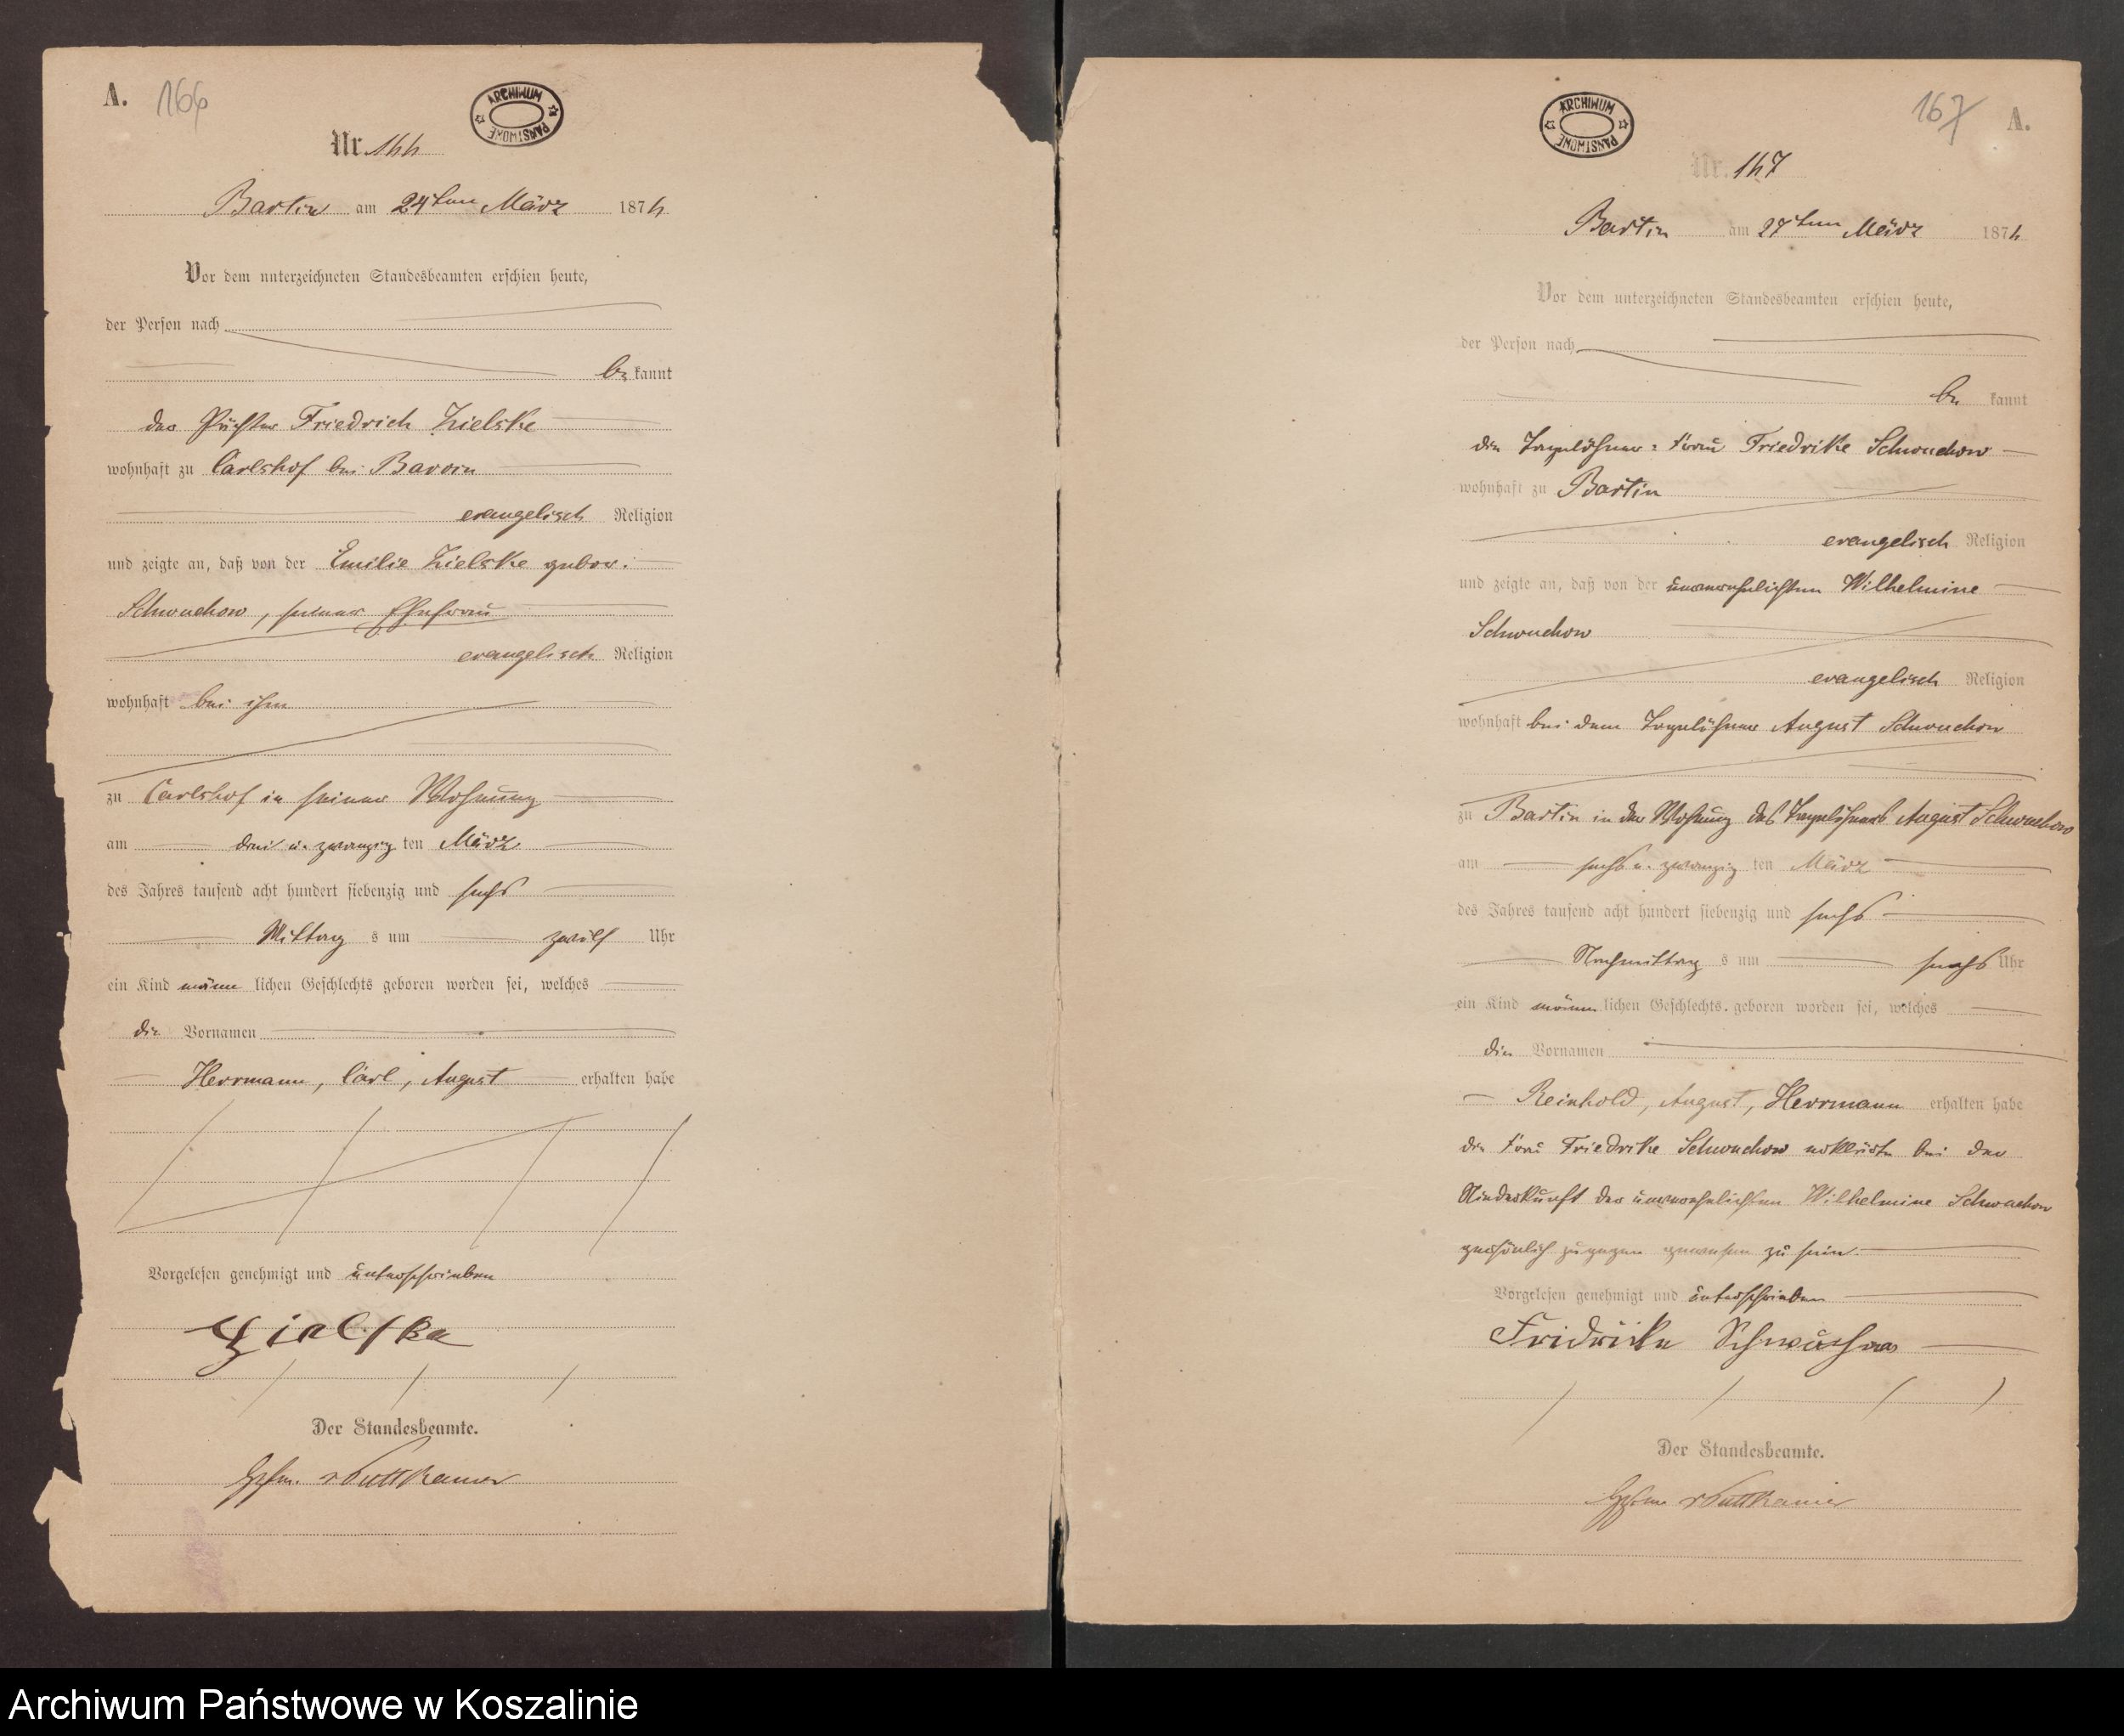 A. 166
ARCHIWUM PAŃSTWOWE
Nr. 166
Bartin am 24ten März 1876
Vor dem unterzeichneten Standesbeamten erschien heute,
der Person nach
be kannt
der Pächter Friedrich Zielske
wohnhaft zu Carlshof bei Barvin
evangelisch Religion
und zeigte an, daß von der Emilie Zielske gebor:
Schwuchow, seiner Ehefrau
evangelisch Religion
wohnhaft bei ihm
zu Carlshof in seiner Wohnung
am drei u. zwanzig ten März
des Jahres tausend acht hundert siebenzig und sechs
Mittag s um zwölf Uhr
ein Kind männ lichen Geschlechts geboren worden sei, welches
die Vornamen
Herrmann, Carl, August erhalten habe
Vorgelesen genehmigt und unterschrieben
Zielske
Der Standesbeamte.
v Puttkamer
167 A.
ARCHIWUM PAŃSTWOWE
Nr. 167
Bartin am 27ten März 1876
Vor dem unterzeichneten Standesbeamten erschien heute,
der Person nach
be kannt
die Tagelöhner=Frau Friedrike Schwuchow
wohnhaft zu Bartin
evangelisch Religion
und zeigte an, daß von der unverehelichten Wilhelmine
Schwuchow
evangelisch Religion
wohnhaft bei dem Tagelöhner August Schwuchow
zu Bartin in der Wohnung des Tagelöhners August Schwuchow
am sechs u. zwanzig ten März
des Jahres tausend acht hundert siebenzig und sechs
Nachmittag s um sechs Uhr
ein Kind männ lichen Geschlechts geboren worden sei, welches
die Vornamen
Reinhold, August, Herrmann erhalten habe
die Frau Friedrike Schwuchow erklärte bei der
Niederkunft der unverehelichten Wilhelmine Schwuchow
persönlich zugegen gewesen zu sein.
Vorgelesen genehmigt und unterschrieben
Fridricke Schwuchow
Der Standesbeamte.
v Puttkamer
Archiwum Państwowe w Koszalinie